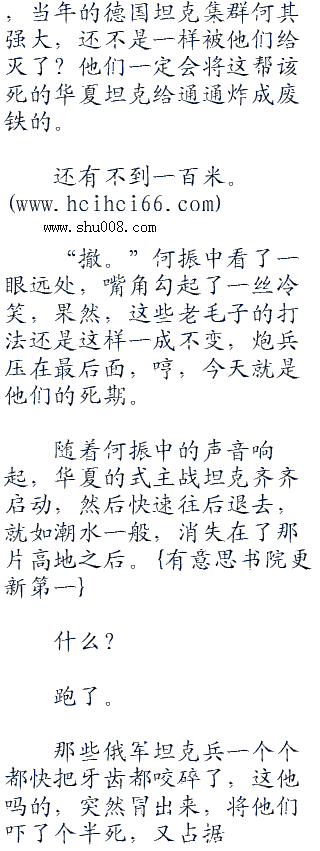 ，当年的德国坦克集群何其
强大，还不是一样被他们给
灭了？他们一定会将这帮该
死的华夏坦克给通通炸成废
铁的。
还有不到一百米。
(www.hcihci66.com)
www.shu008.com
“撤。”何振中看了一
眼远处，嘴角勾起了一丝冷
笑，果然，这些老毛子的打
法还是这样一成不变，炮兵
压在最后面，哼，今天就是
他们的死期。
随着何振中的声音响
起，华夏的式主战坦克齐齐
启动，然后快速往后退去，
就如潮水一般，消失在了那
片高地之后。{有意思书院更
新第一}
什么？
跑了。
那些俄军坦克兵一个个
都快把牙齿都咬碎了，这他
吗的，突然冒出来，将他们
吓了个半死，又占据